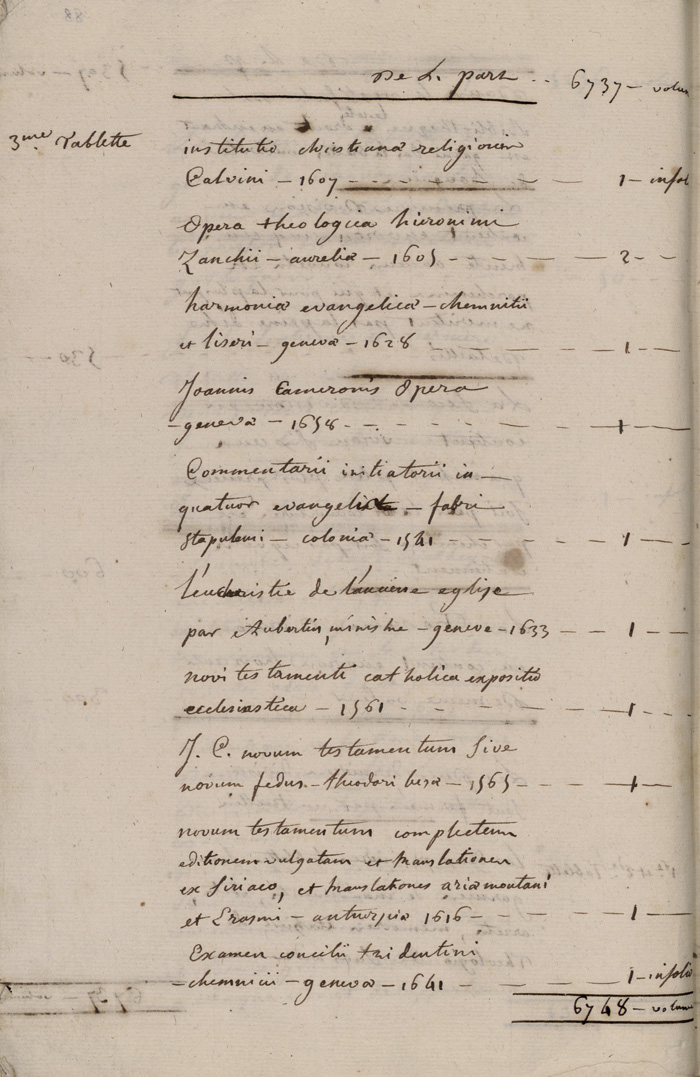 88
De L. part - - 6737 - volu
3me Tablette
institutio christiana religionis
Calvini - 1607 - - - - - 1 - infol
Opera theologica hieronimi
Zanchii - aurelia - 1605 - - - - - 2 - -
harmonia evangelica - chemnitii
et liseri - geneva - 1628 - - - - 1 -
Joannis Cameronis Opera
- geneva - 1658 - - - - - 1 -
Commentarii initiatorii in -
quatuor evangelista - fabri
stapulensi - colonia - 1541 - - - - 1 -
l'eucharistie de l'ancienne eglise
par Aubertin, ministre - geneve - 1633 - - 1 -
novi testamenti catholica expositio
ecclesiastica - 1561 - - - - - 1 - -
J. C. novum testamentum sive
novum fedus - theodori besa - 1565 - - - 1 -
novum testamentum complectens
editionem vulgatam et translationem
ex siriaco, et translationes aria montani
et Erasmi - anturpia 1616 - - - - 1 -
Examen concilii tridentini
- chemnicii - geneva - 1641 - - - 1 - infolio
6748 - volum